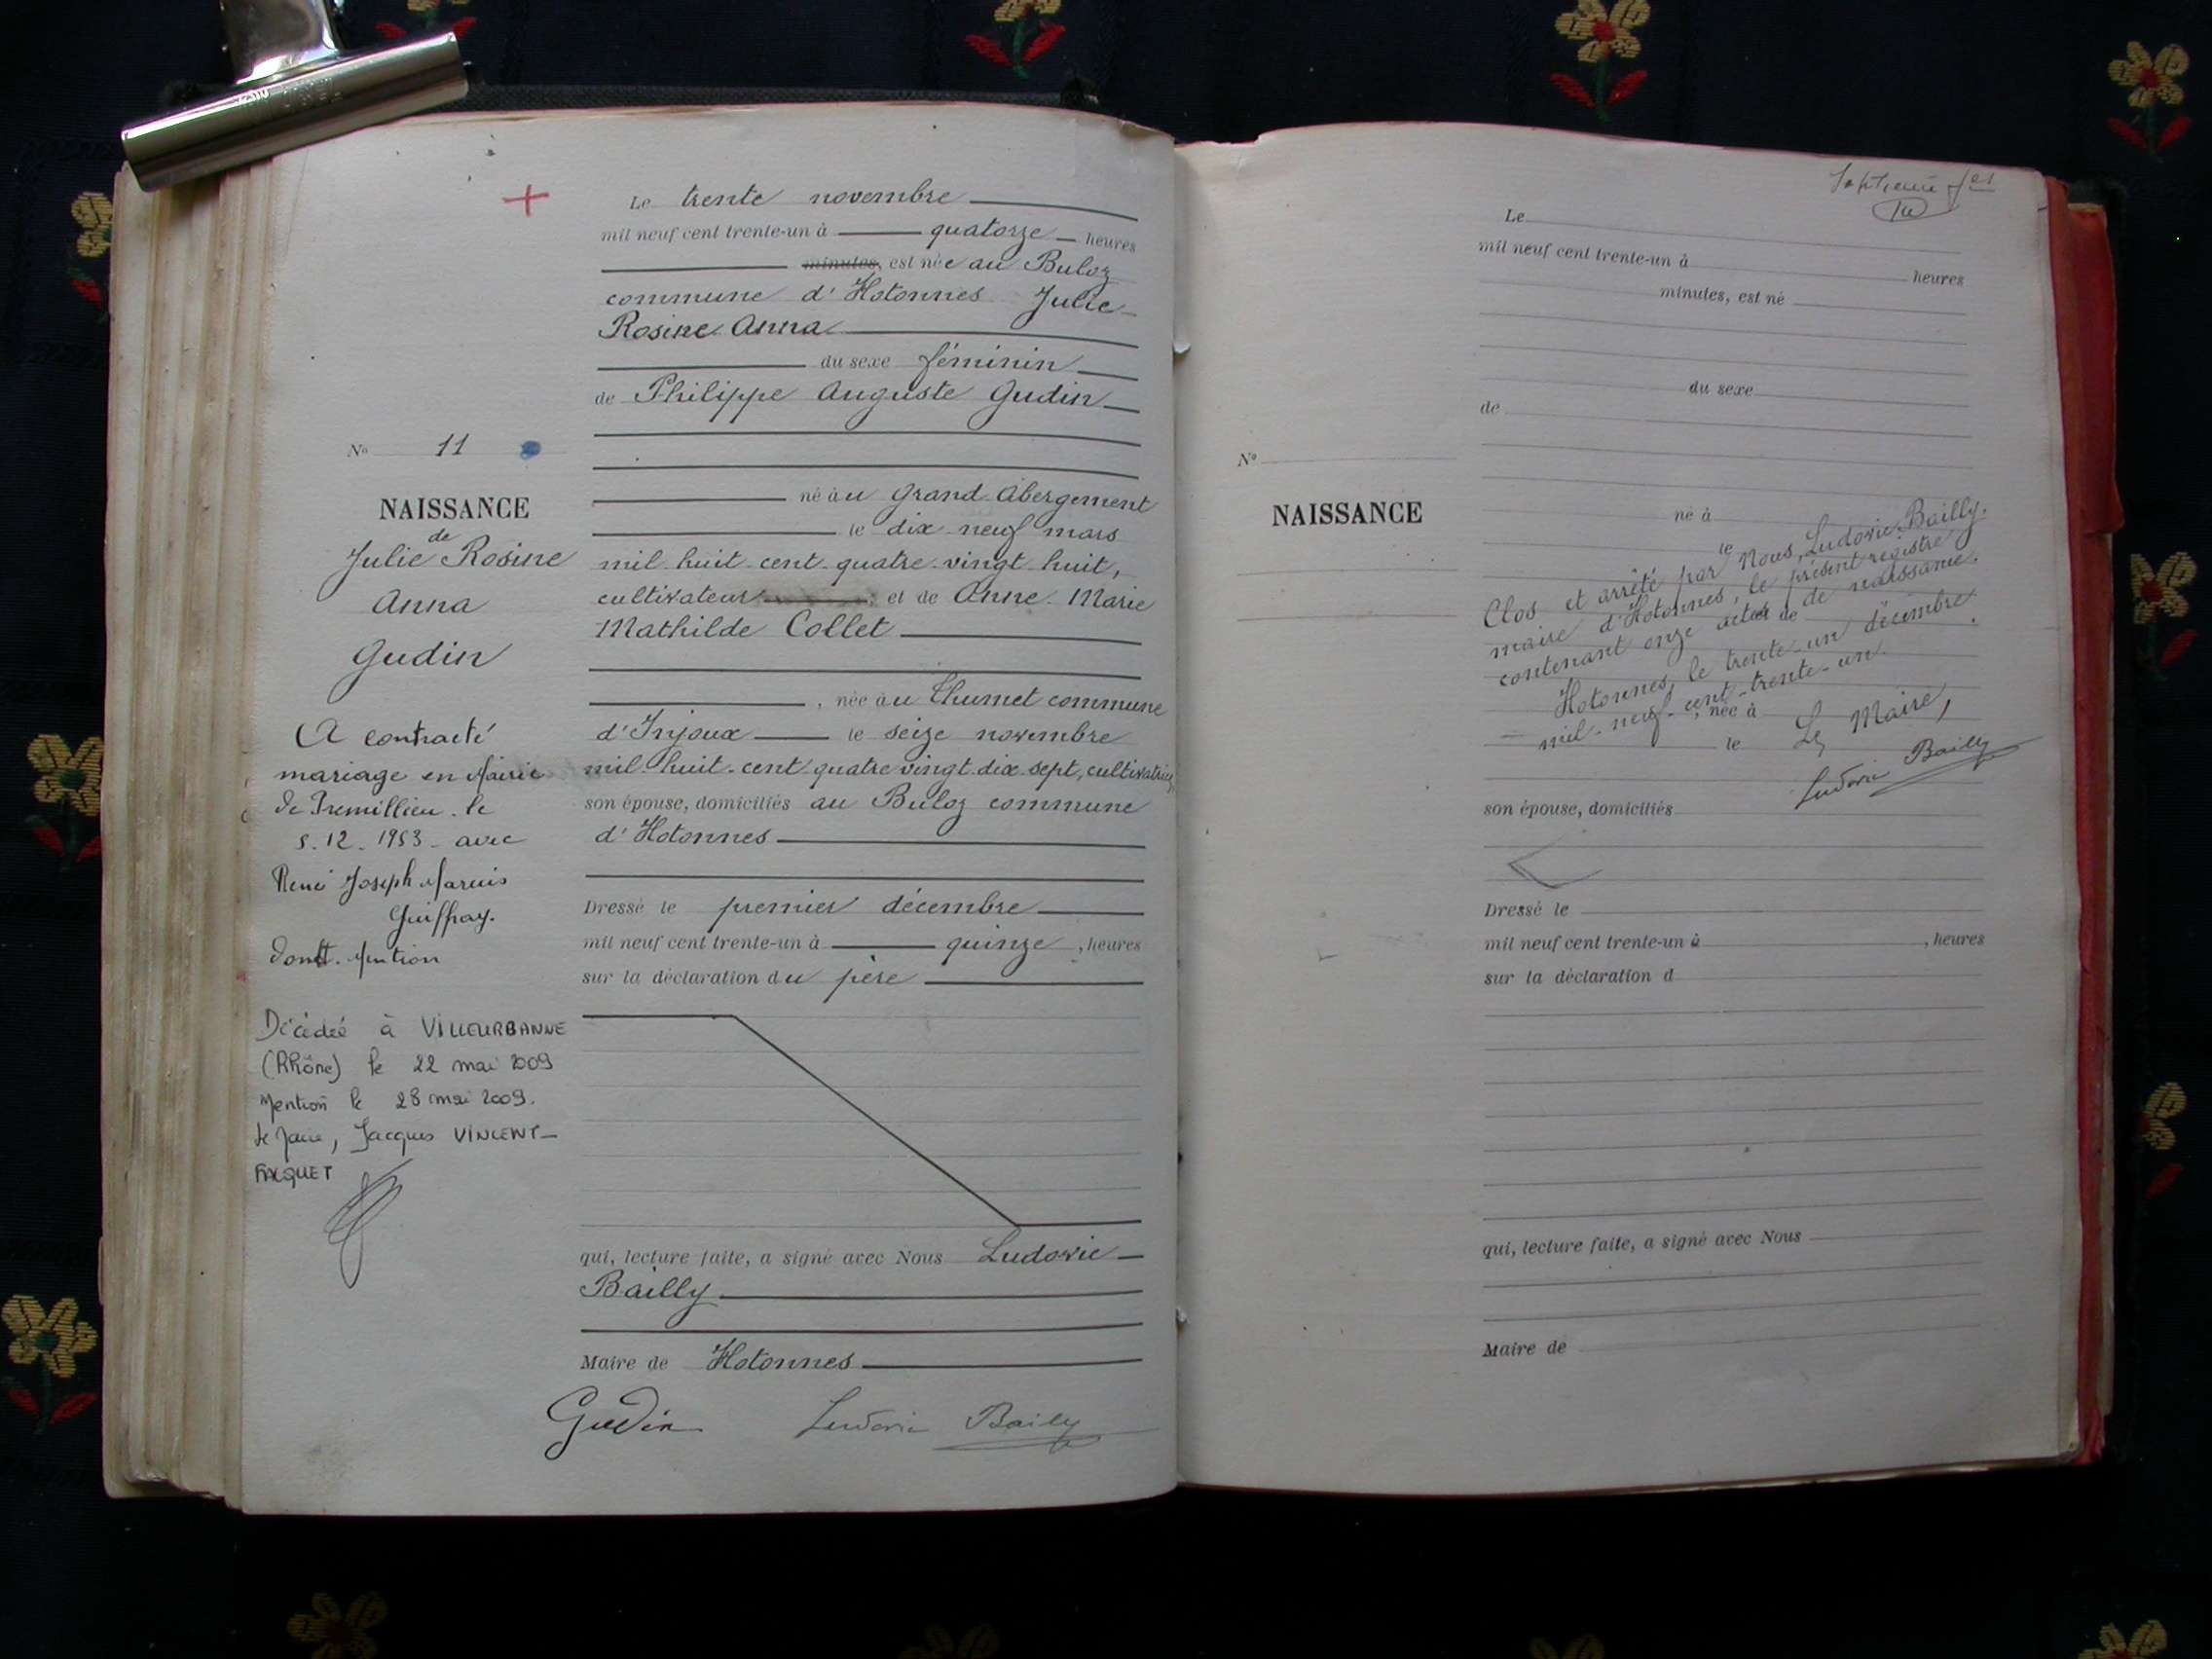 Le trente novembre
mil neuf cent trente-un à quatorze heures
minutes, est née au Buloz
commune d'Hotonnes Julie
Rosine Anna
du sexe féminin
de Philippe Auguste Gudin
né au Grand Abergement
le dix neuf mars
mil huit cent quatre vingt huit,
cultivateur, et de Anne Marie
Mathilde Collet
, née au Chumet commune
d'Injoux le seize novembre
mil huit cent quatre vingt dix sept, cultivatrice
son épouse, domiciliés au Buloz commune
d'Hotonnes
Dressé le premier décembre
mil neuf cent trente-un à quinze, heures
sur la déclaration du père
qui, lecture faite, a signé avec Nous Ludovic
Bailly
Maire de Hotonnes
Gudin Ludovic Bailly
No 11
NAISSANCE
de
Julie Rosine
Anna
Gudin
A contracté
mariage en Mairie
de Premillieu le
5.12.1953 avec
René Joseph Marius
Guiffray.
dont Mention
Décédée à VILLEURBANNE
(Rhône) le 22 mai 2009
Mention le 28 mai 2009.
Le Maire, Jacques VINCENT-
FALQUET
Le
mil neuf cent trente-un à heures
minutes, est né
du sexe
de
No
NAISSANCE
né à
le
Clos et arrêté par Nous, Ludovic Bailly,
maire d'Hotonnes, le présent registre
contenant onze actes de naissance.
et de
Hotonnes, le trente-un décembre
mil-neuf-cent-trente-un.
, née à
le
Le Maire,
Ludovic Bailly
son épouse, domiciliés
Dressé le
mil neuf cent trente-un à , heures
sur la déclaration d
qui, lecture faite, a signé avec Nous
Maire de